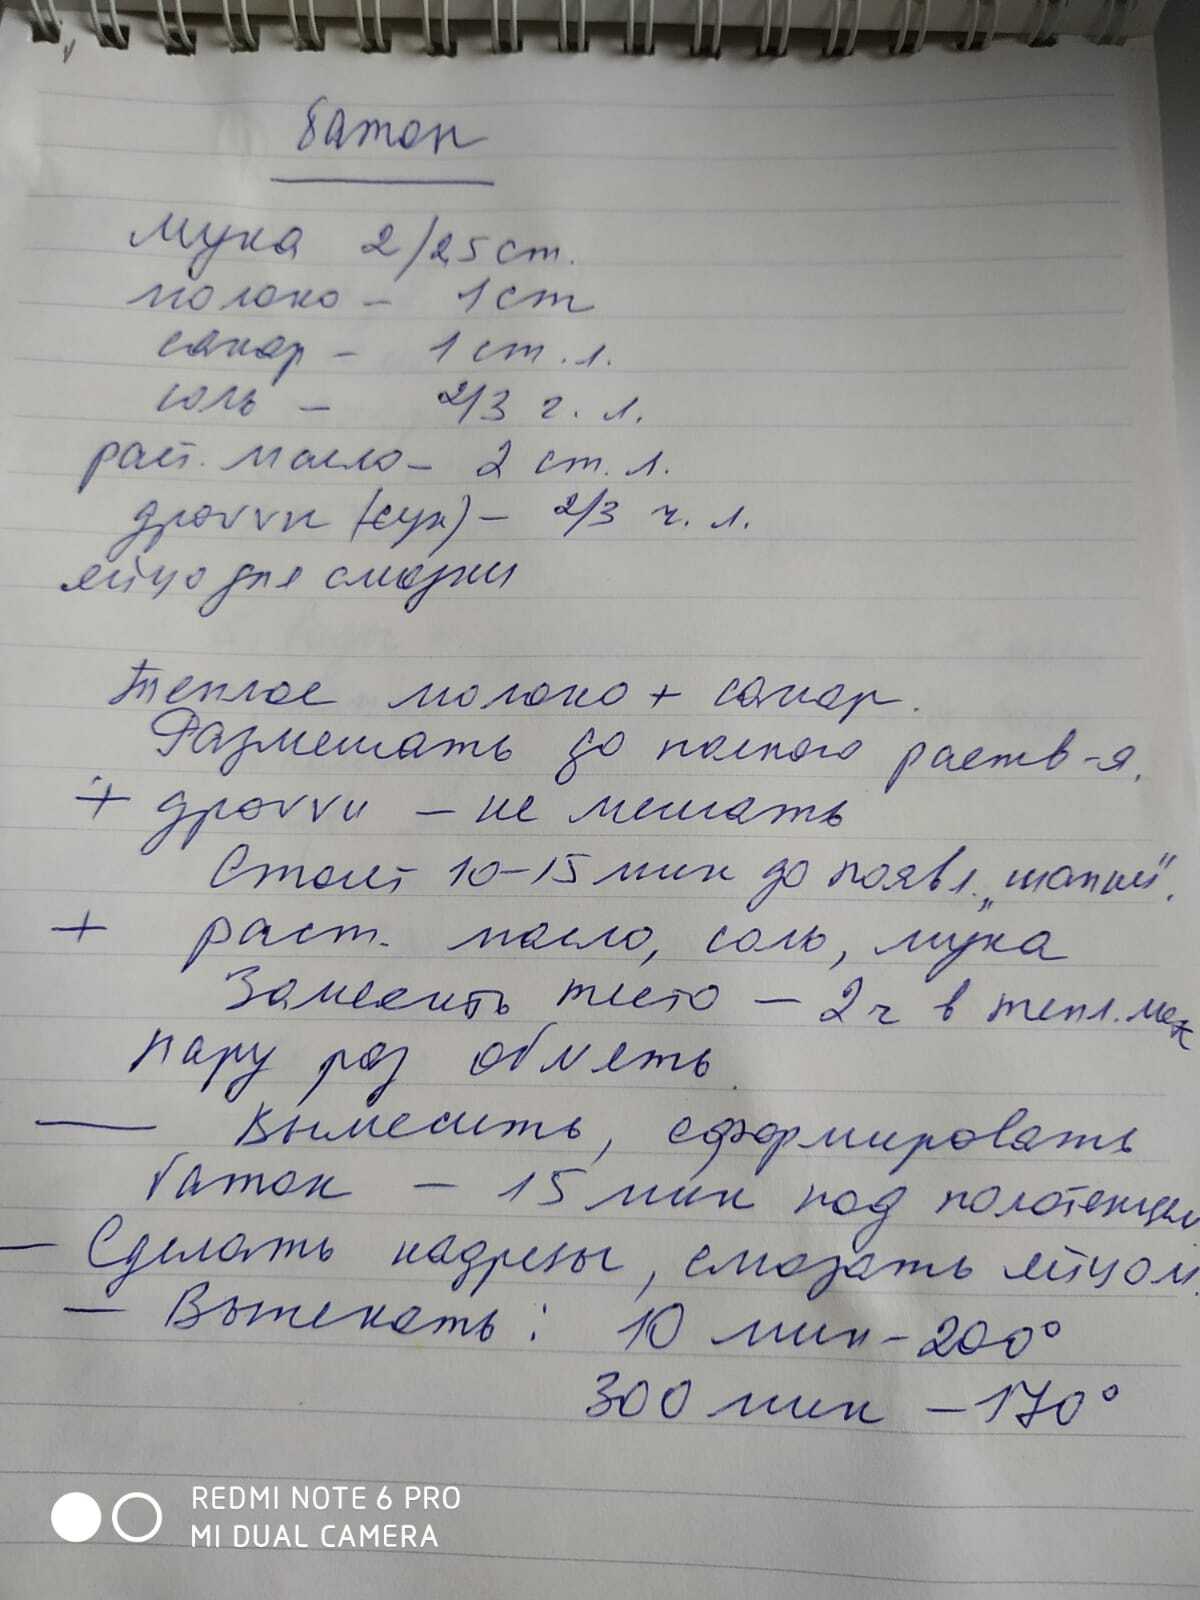 батон
мука 2/2,5 ст.
молоко - 1 ст
сахар - 1 ст. л.
соль - 2/3 ч. л.
раст. масло - 2 ст. л.
дрожжи (сух) - 2/3 ч. л.
яйцо для смазки
Теплое молоко + сахар.
Размешать до полного раств-я.
+ дрожжи - не мешать
Стоит 10-15 мин до появл. „шапки".
+ раст. масло, соль, мука
Замесить тесто - 2 ч в тепл. мес
Пару раз обмять.
— Вымесить, сформировать
батон - 15 мин под полотенцем
— Сделать надрезы, смазать яйцом.
— Выпекать: 10 мин - 200°
300 мин - 170°
REDMI NOTE 6 PRO
MI DUAL CAMERA